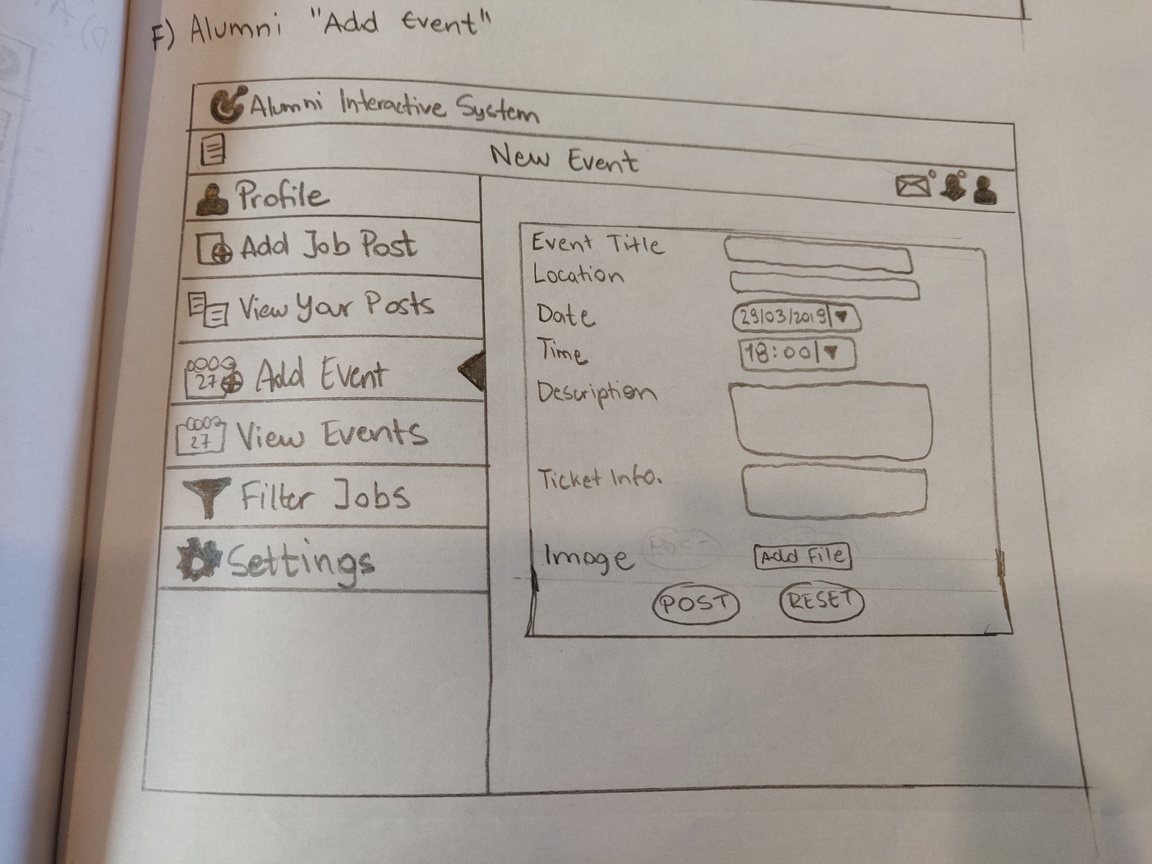 F) Alumni "Add Event"
Alumni Interactive System
New Event
Profile
Add Job Post
View Your Posts
27 Add Event
27 View Events
Filter Jobs
Settings
Event Title
Location
Date 29/03/2019
Time 18:00
Description
Ticket Info.
Image Add File
POST RESET